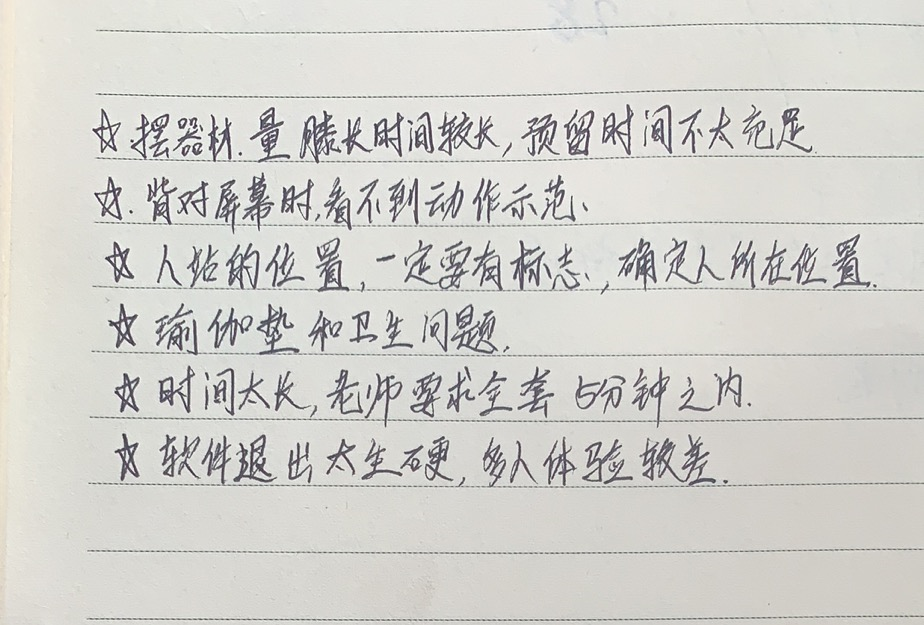 ☆.摆器材.量膝长时间较长,预留时间不太充足
☆.背对屏幕时,看不到动作示范、
☆人站的位置,一定要有标志、,确定人所在位置.
☆瑜伽垫和卫生问题.
☆时间太长,老师要求全套5分钟之内.
☆软件退出太生硬,多人体验较差.